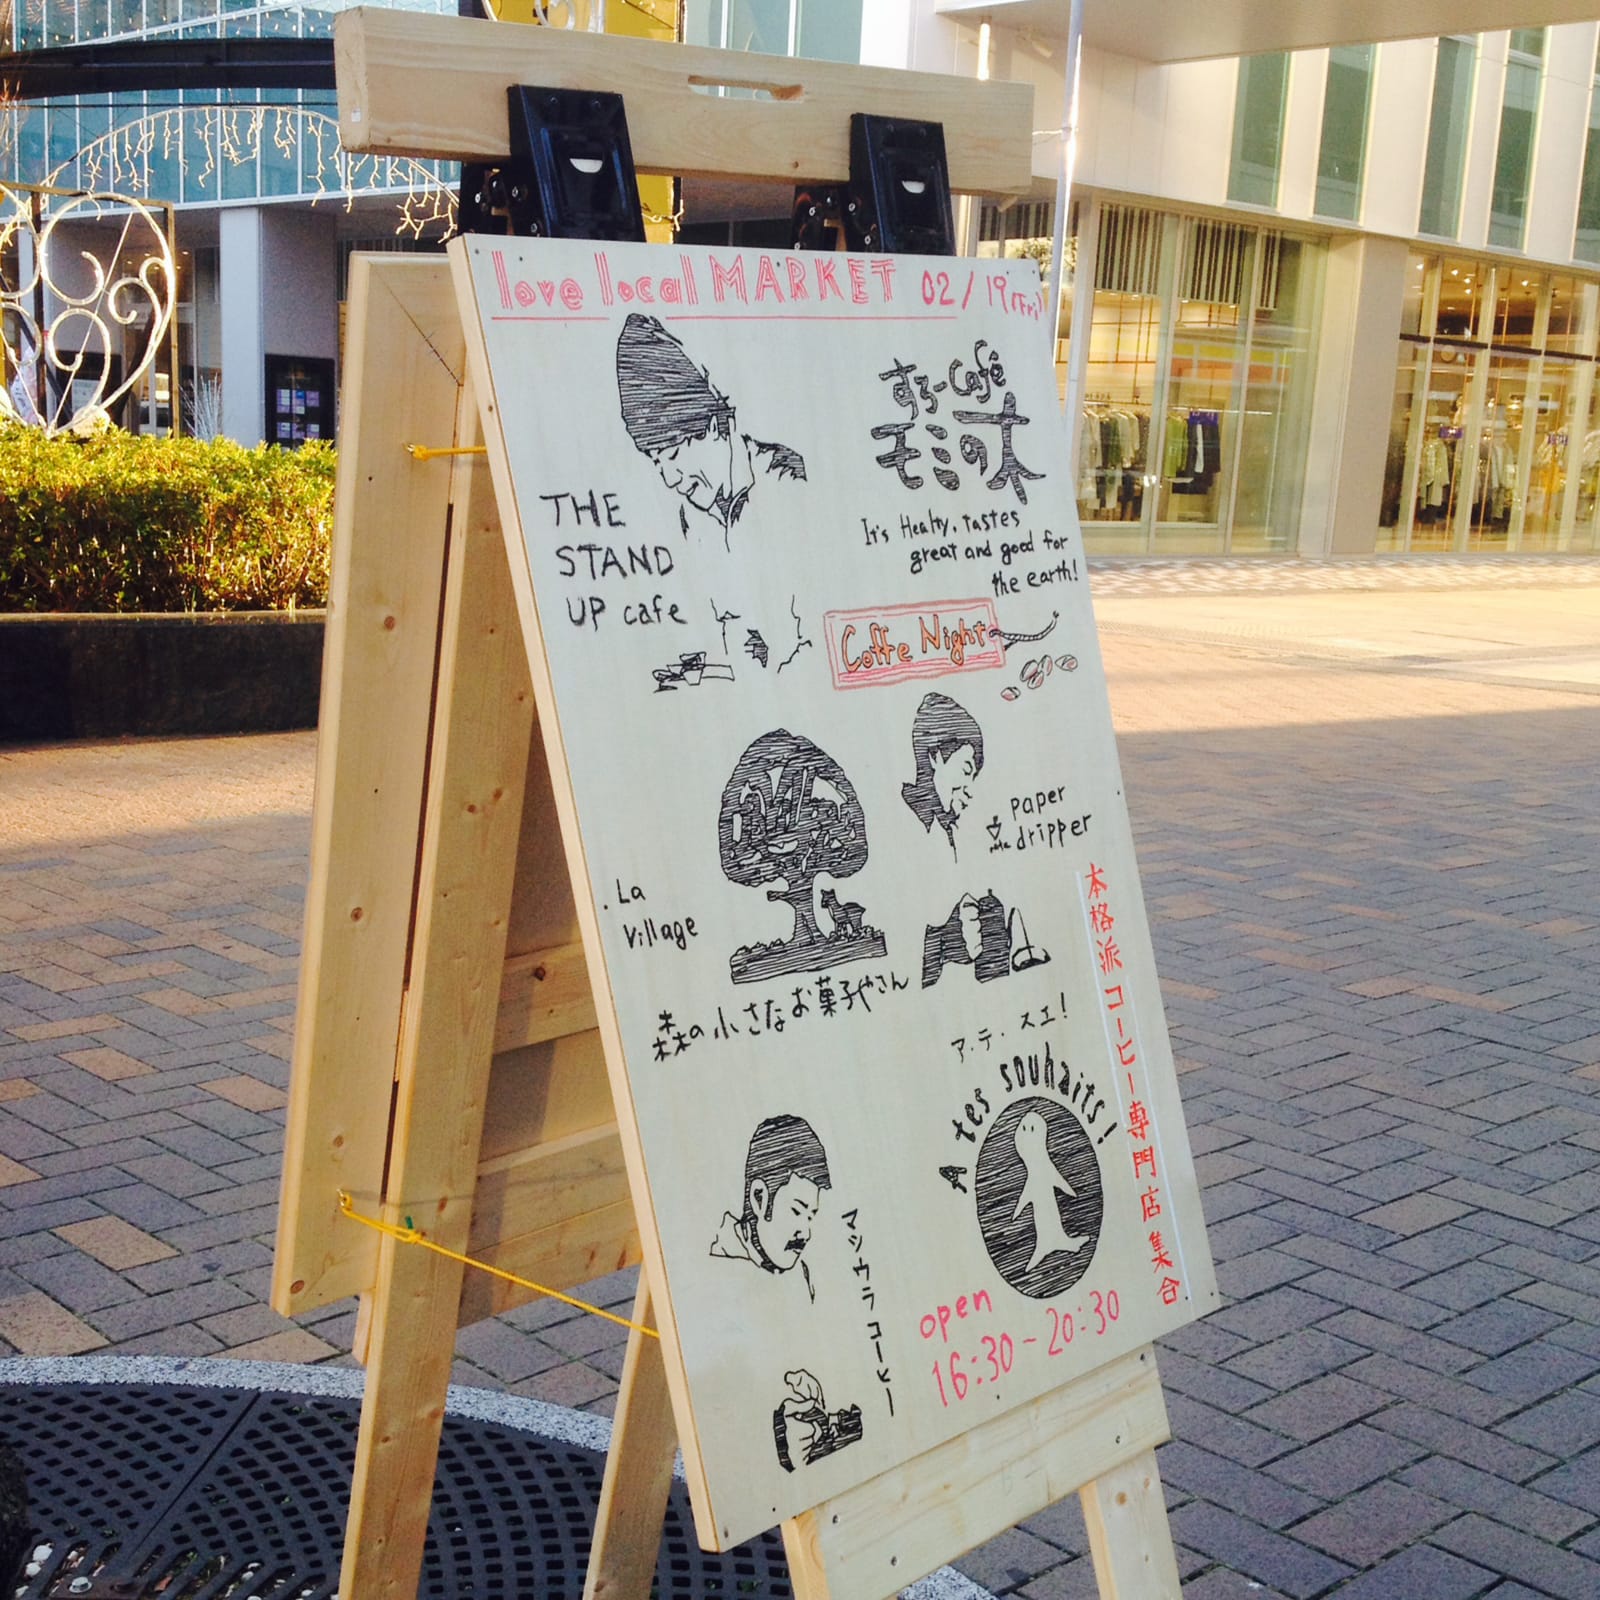 love local MARKET 02/19(Fri)
THE
STAND
UP cafe
すろーCafé
モミの木
It's Healty, tastes
great and good for
the earth!
Coffe Night
paper
dripper
La
village
森の小さなお菓子やさん
ア・テ・スエ!
A tes souhaits!
マツウラコーヒー
本格派コーヒー専門店集合
open
16:30-20:30